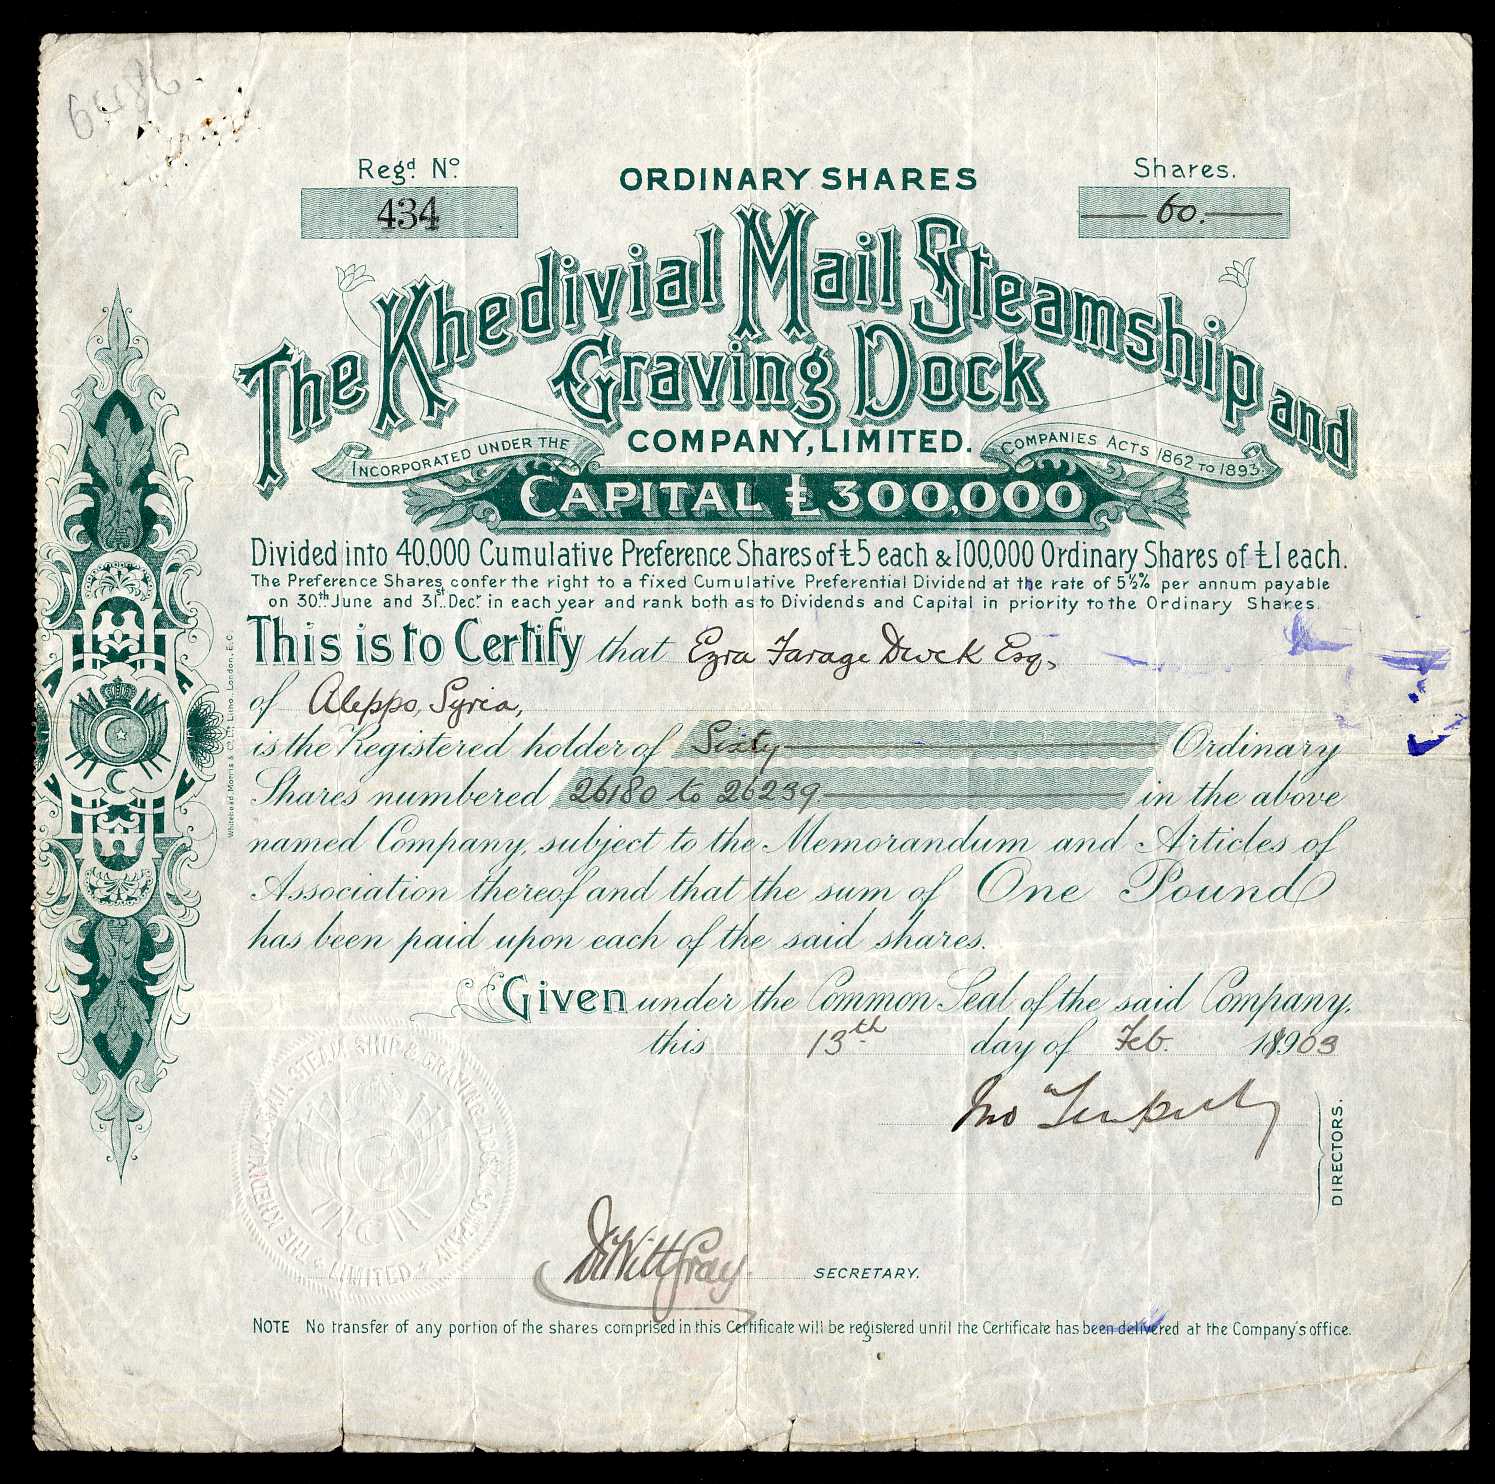 Regd No.
434
ORDINARY SHARES
Shares.
60.
The Khedivial Mail Steamship and
Graving Dock
COMPANY, LIMITED.
INCORPORATED UNDER THE
COMPANIES ACTS 1862 TO 1893.
CAPITAL £300,000
Divided into 40,000 Cumulative Preference Shares of £5 each & 100,000 Ordinary Shares of £1 each.
The Preference Shares confer the right to a fixed Cumulative Preferential Dividend at the rate of 5½% per annum payable
on 30th June and 31st Decr in each year and rank both as to Dividends and Capital in priority to the Ordinary Shares.
This is to Certify that Ezra Farage Dweck Esq.
of Aleppo, Syria,
is the Registered holder of Sixty Ordinary
Shares numbered 26180 to 26239 in the above
named Company, subject to the Memorandum and Articles of
Association thereof and that the sum of One Pound
has been paid upon each of the said shares.
Given under the Common Seal of the said Company,
this 13th day of Feb. 1903
DIRECTORS.
THE KHEDIVIAL MAIL STEAM SHIP & GRAVING DOCK COMPANY LIMITED
DeWitt Gray
SECRETARY.
NOTE No transfer of any portion of the shares comprised in this Certificate will be registered until the Certificate has been delivered at the Company's office.
Whitehead, Morris & Co. Ltd Litho. London, E.C.